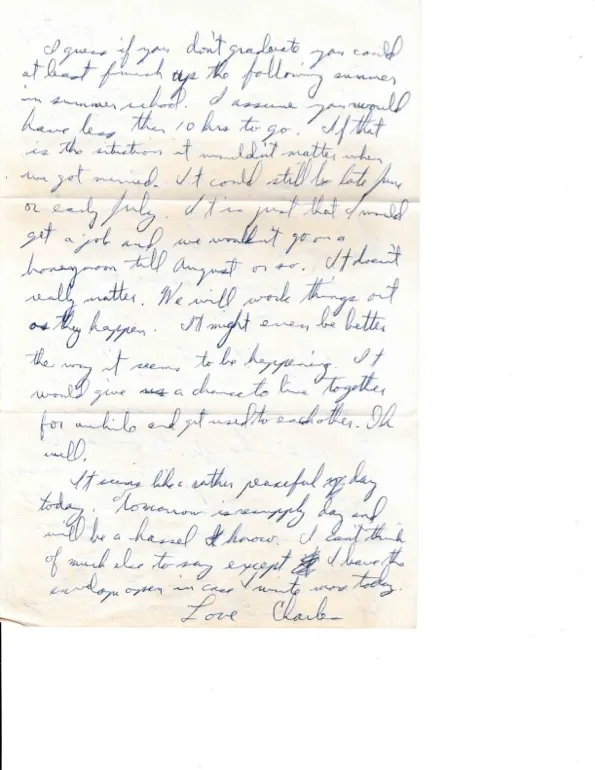 I guess if you don't graduate you could
at least finish up the following summer
in summer school. I assume you would
have less than 10 hrs to go. If that
is the situation it wouldn't matter when
we got married. It could still be late June
or early July. It is just that I would
get a job and we wouldn't go on a
honeymoon till August or so. It doesn't
really matter. We will work things out
as they happen. It might even be better
the way it seems to be happening. It
would give us a chance to live together
for awhile and get used to each other. Oh
well.
It seems like a rather peaceful day
today. Tomorrow is resupply day and
will be a hassel I know. I can't think
of much else to say except I leave the
envelope open in case I write more today.
Love Charles